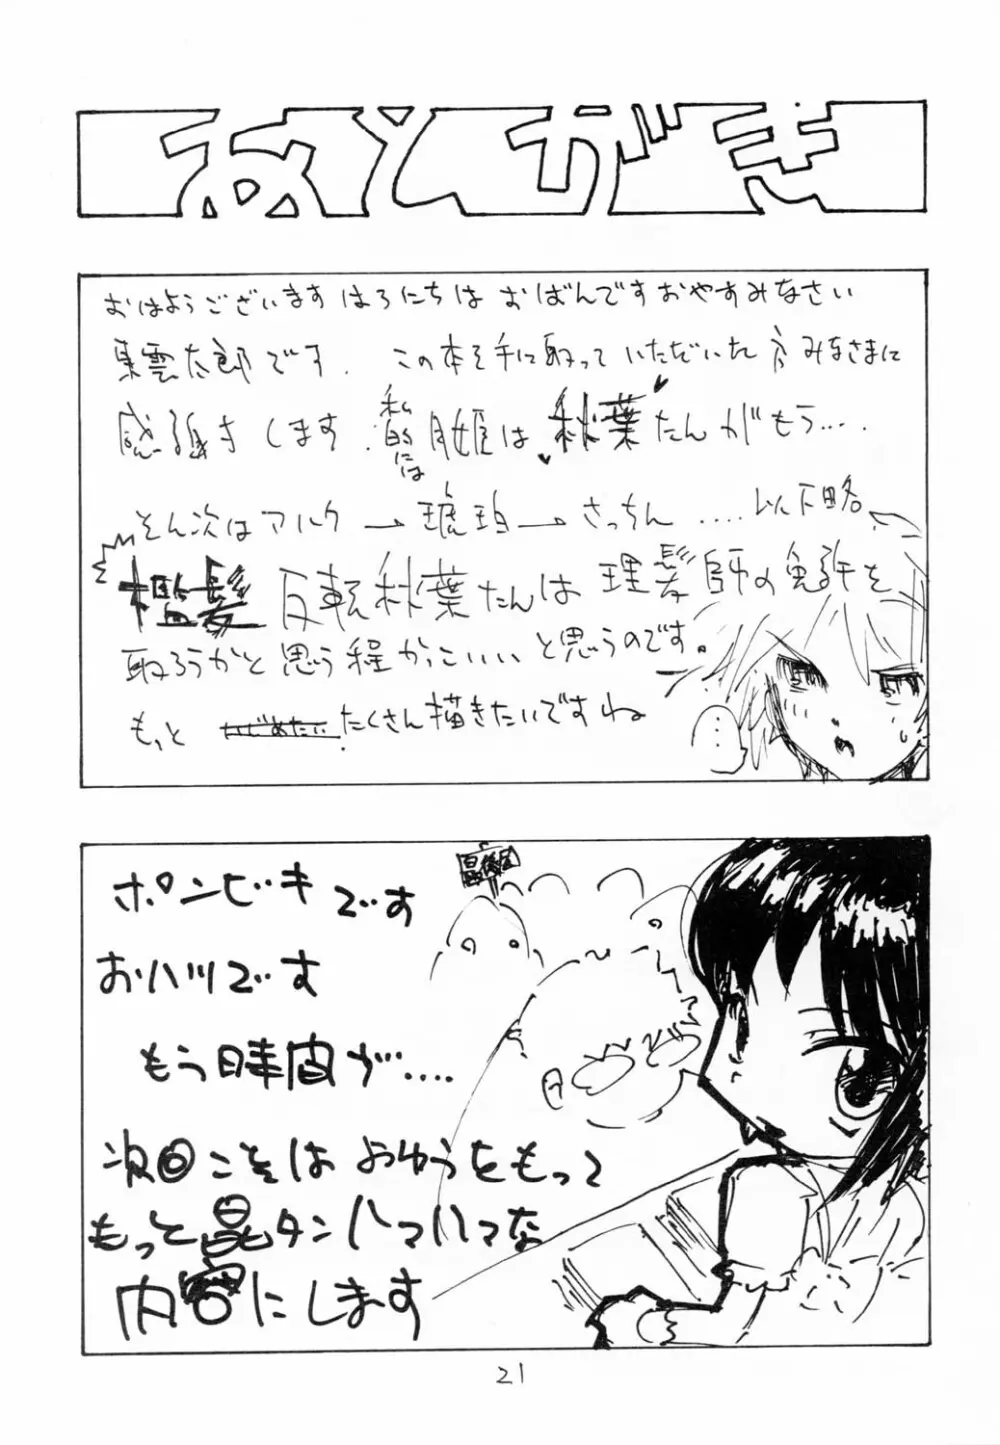 あとがき
おはようございます はろにちは おばんです おやすみなさい
東雲太郎です. この本を手に取っていただいた方みなさまに
感謝をします. 私的には月姫は秋葉たんがもう....
そん次はアルク→琥珀→さっちん....以下略
檻髪 反転秋葉たんは理髪師の免許を
取ろうかと思う程かっこいいいと思うのです。
もっと いじめたい. たくさん描きたいですね
...
最後尾
ポンビキです
おハツです
もう時間が....
次回こそは おゆうをもって
もっと晶タンハァハァな
内容にします
21